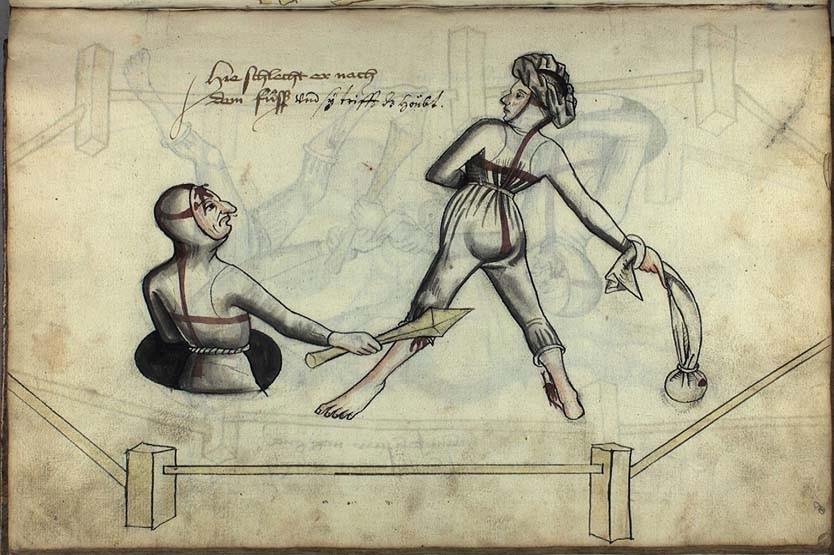 Hie schlecht er nach
dem fu̍sß vnd sy trifft dz hoͮbt.